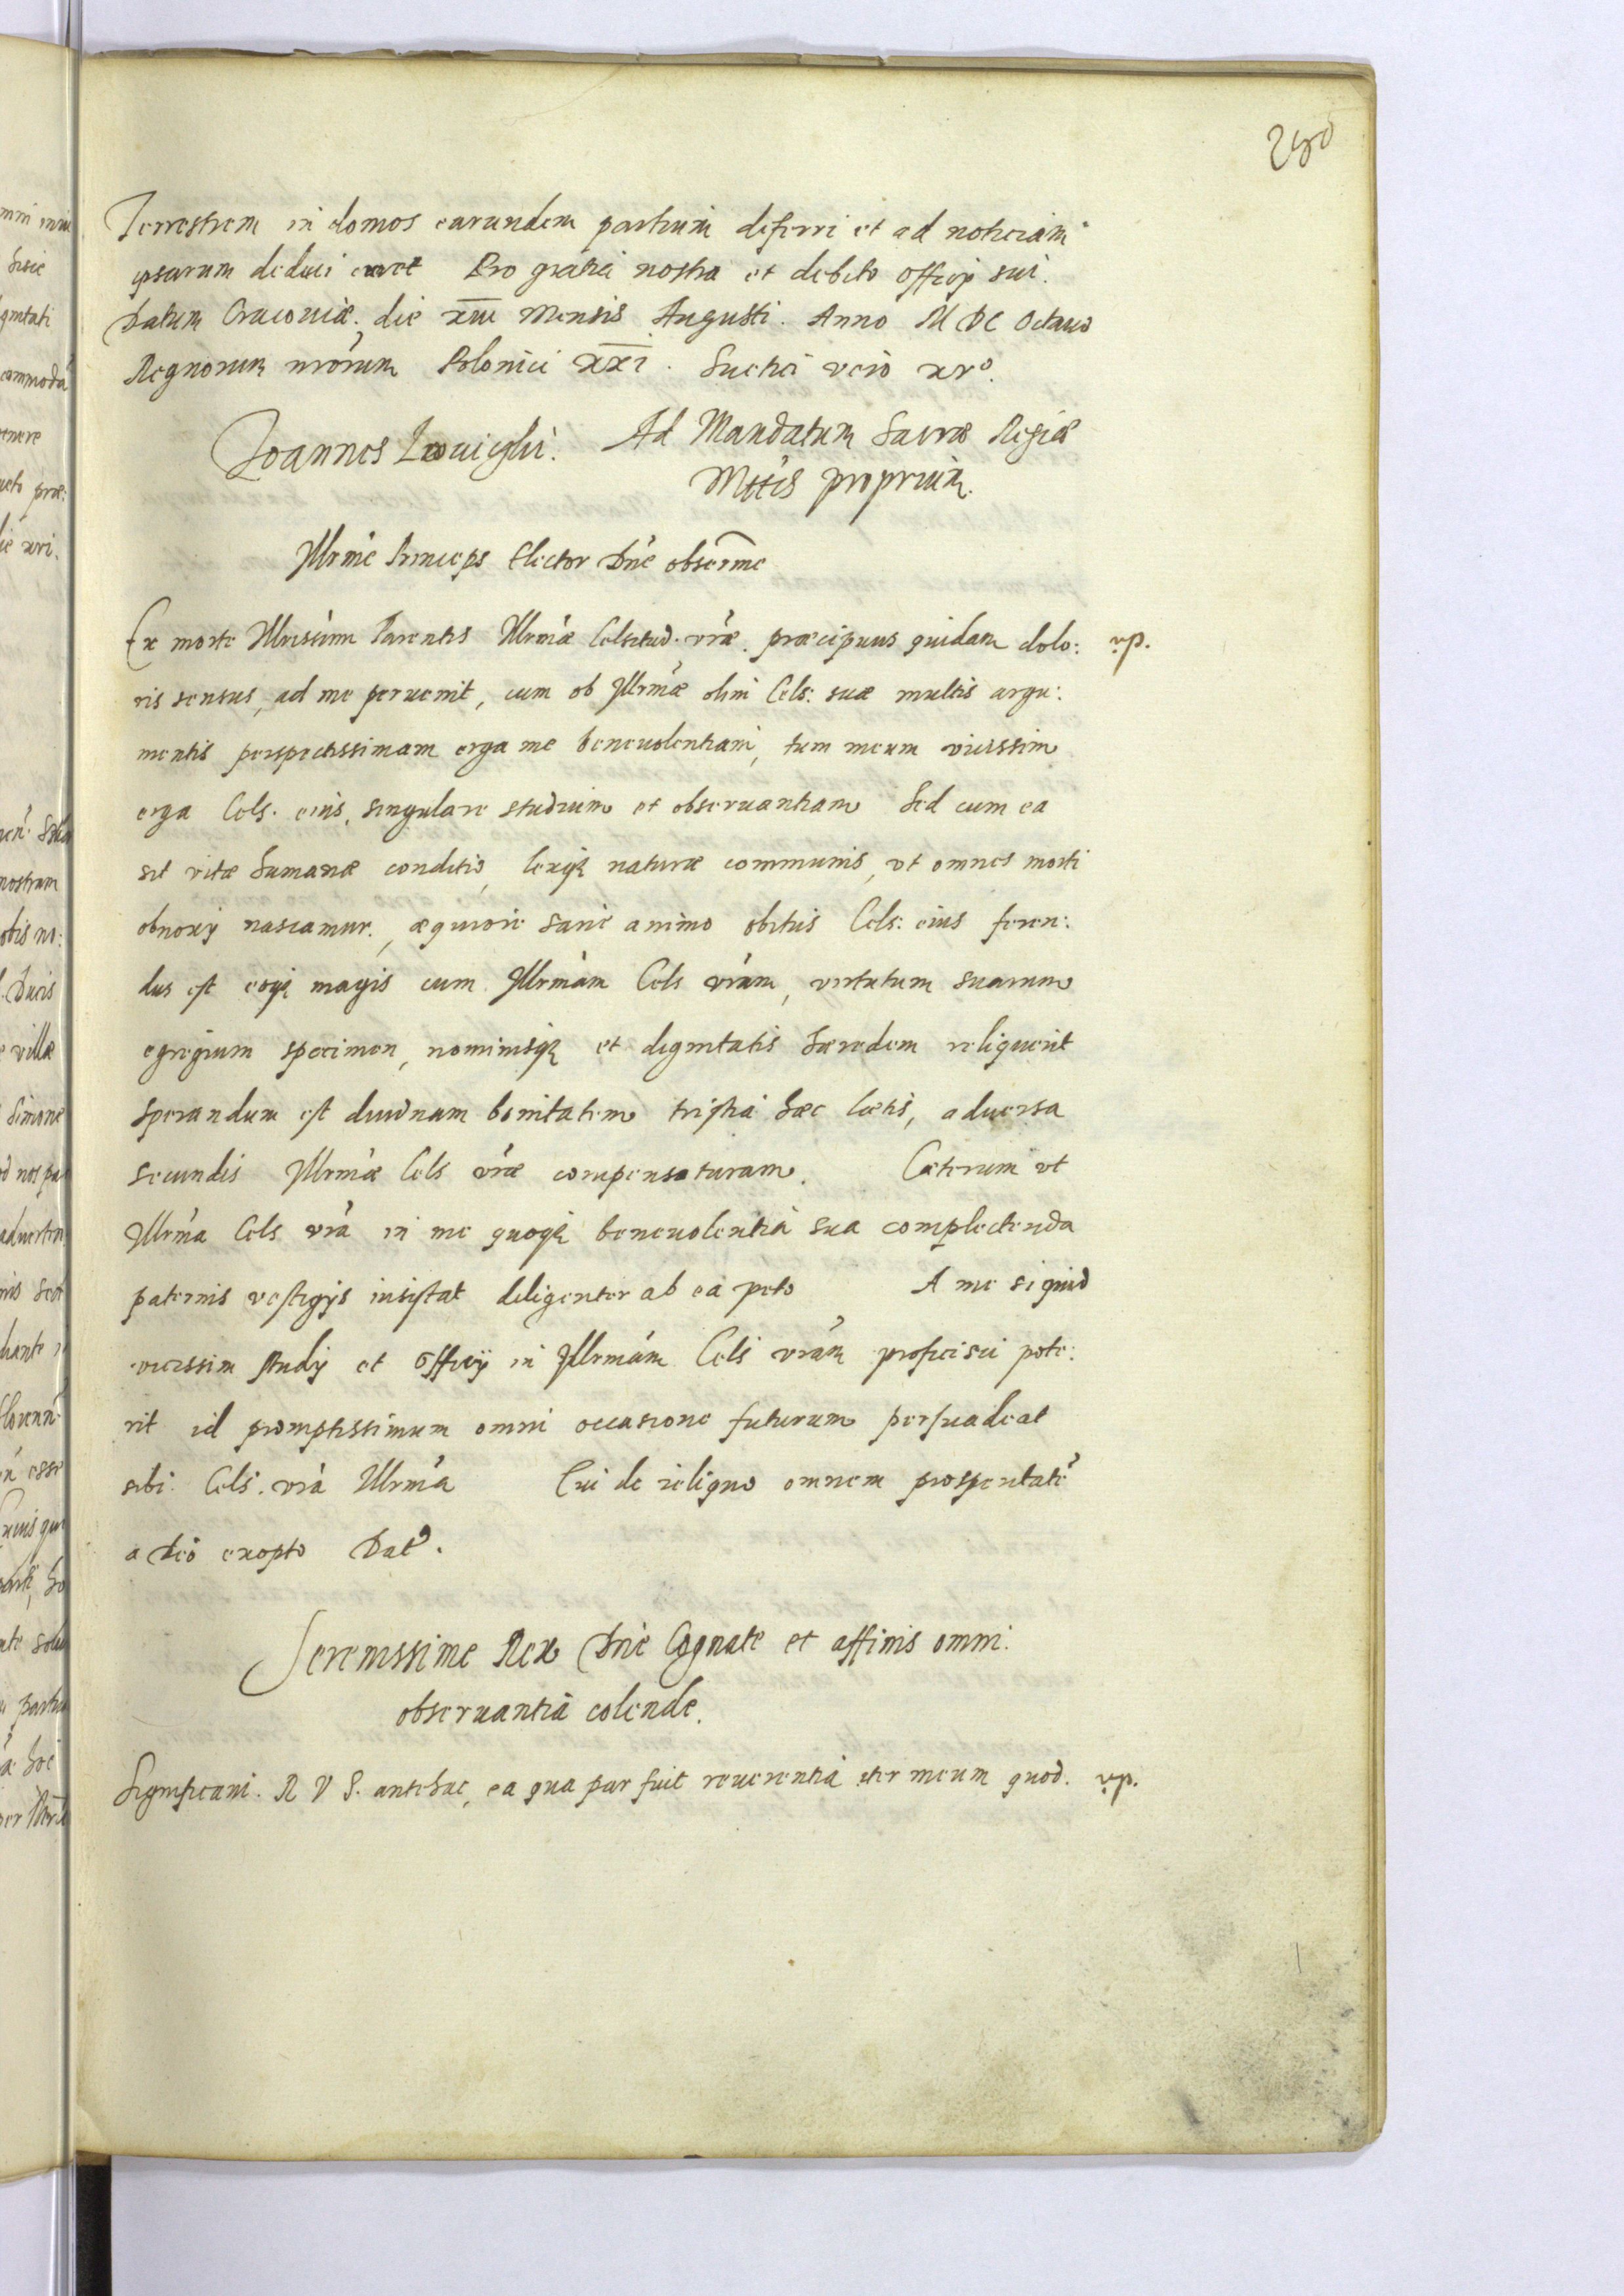 280
Terrestrem in domos earundem partium deferri et ad noticiam
ipsarum deduci curet Pro gratia nostra et debito officij sui.
Datum Cracoviæ. die Mensis Augusti. Anno M DC Octauo
Regnorum nrorum Poloniæ XXI. Suetiæ vero xvº.
Joannes Ad Mandatum Sacræ Regiæ
Mttis proprium.
Illrme Princeps Elector Dne obserme
Ex morte Illrissimi Parentis Illrmæ Celsitud. vræ. præcipuus quidam dolo: vp.
ris sensus, ad me peruenit, cum ob Illrmæ olim Cels: suæ multis argu:
mentis perspectissimam erga me beneuolentiam, tum meum vicissim
erga Cels. eius, singulare studium et obseruantiam Sed cum ea
sit vitæ humanæ conditio, lexq; naturæ communis, vt omnes morti
obnoxij nascamur, æquiore sane animo obitus Cels: eius feren:
dus est eoq; magis cum Illrmam Cels vram, virtutum suarum
egregium specimen, nominisq; et dignitatis hæredem reliquerit
Sperandum est diuinam bonitatem tristia hæc lætis, aduersa
secundis Illrmæ Cels vræ compensaturam. Cæterum vt
Illrma Cels vra in me quoq; beneuolentia sua complectenda
paternis vestigijs insistat diligenter ab ea peto A me siquid
vicissim studij et officij in Illrmam Cels vram proficisci pote:
rit id promptissimum omni occasione futurum persuadeat
sibi. Cels. vra Illrma Cui de reliquo omnem prosperitate
a Deo exopto Dat.
Serenissime Rex Dne Cognate et affinis omni
obseruantia colende.
Significaui. R V S. antehac, ea qua par fuit reuerentia iter meum quod. vp.